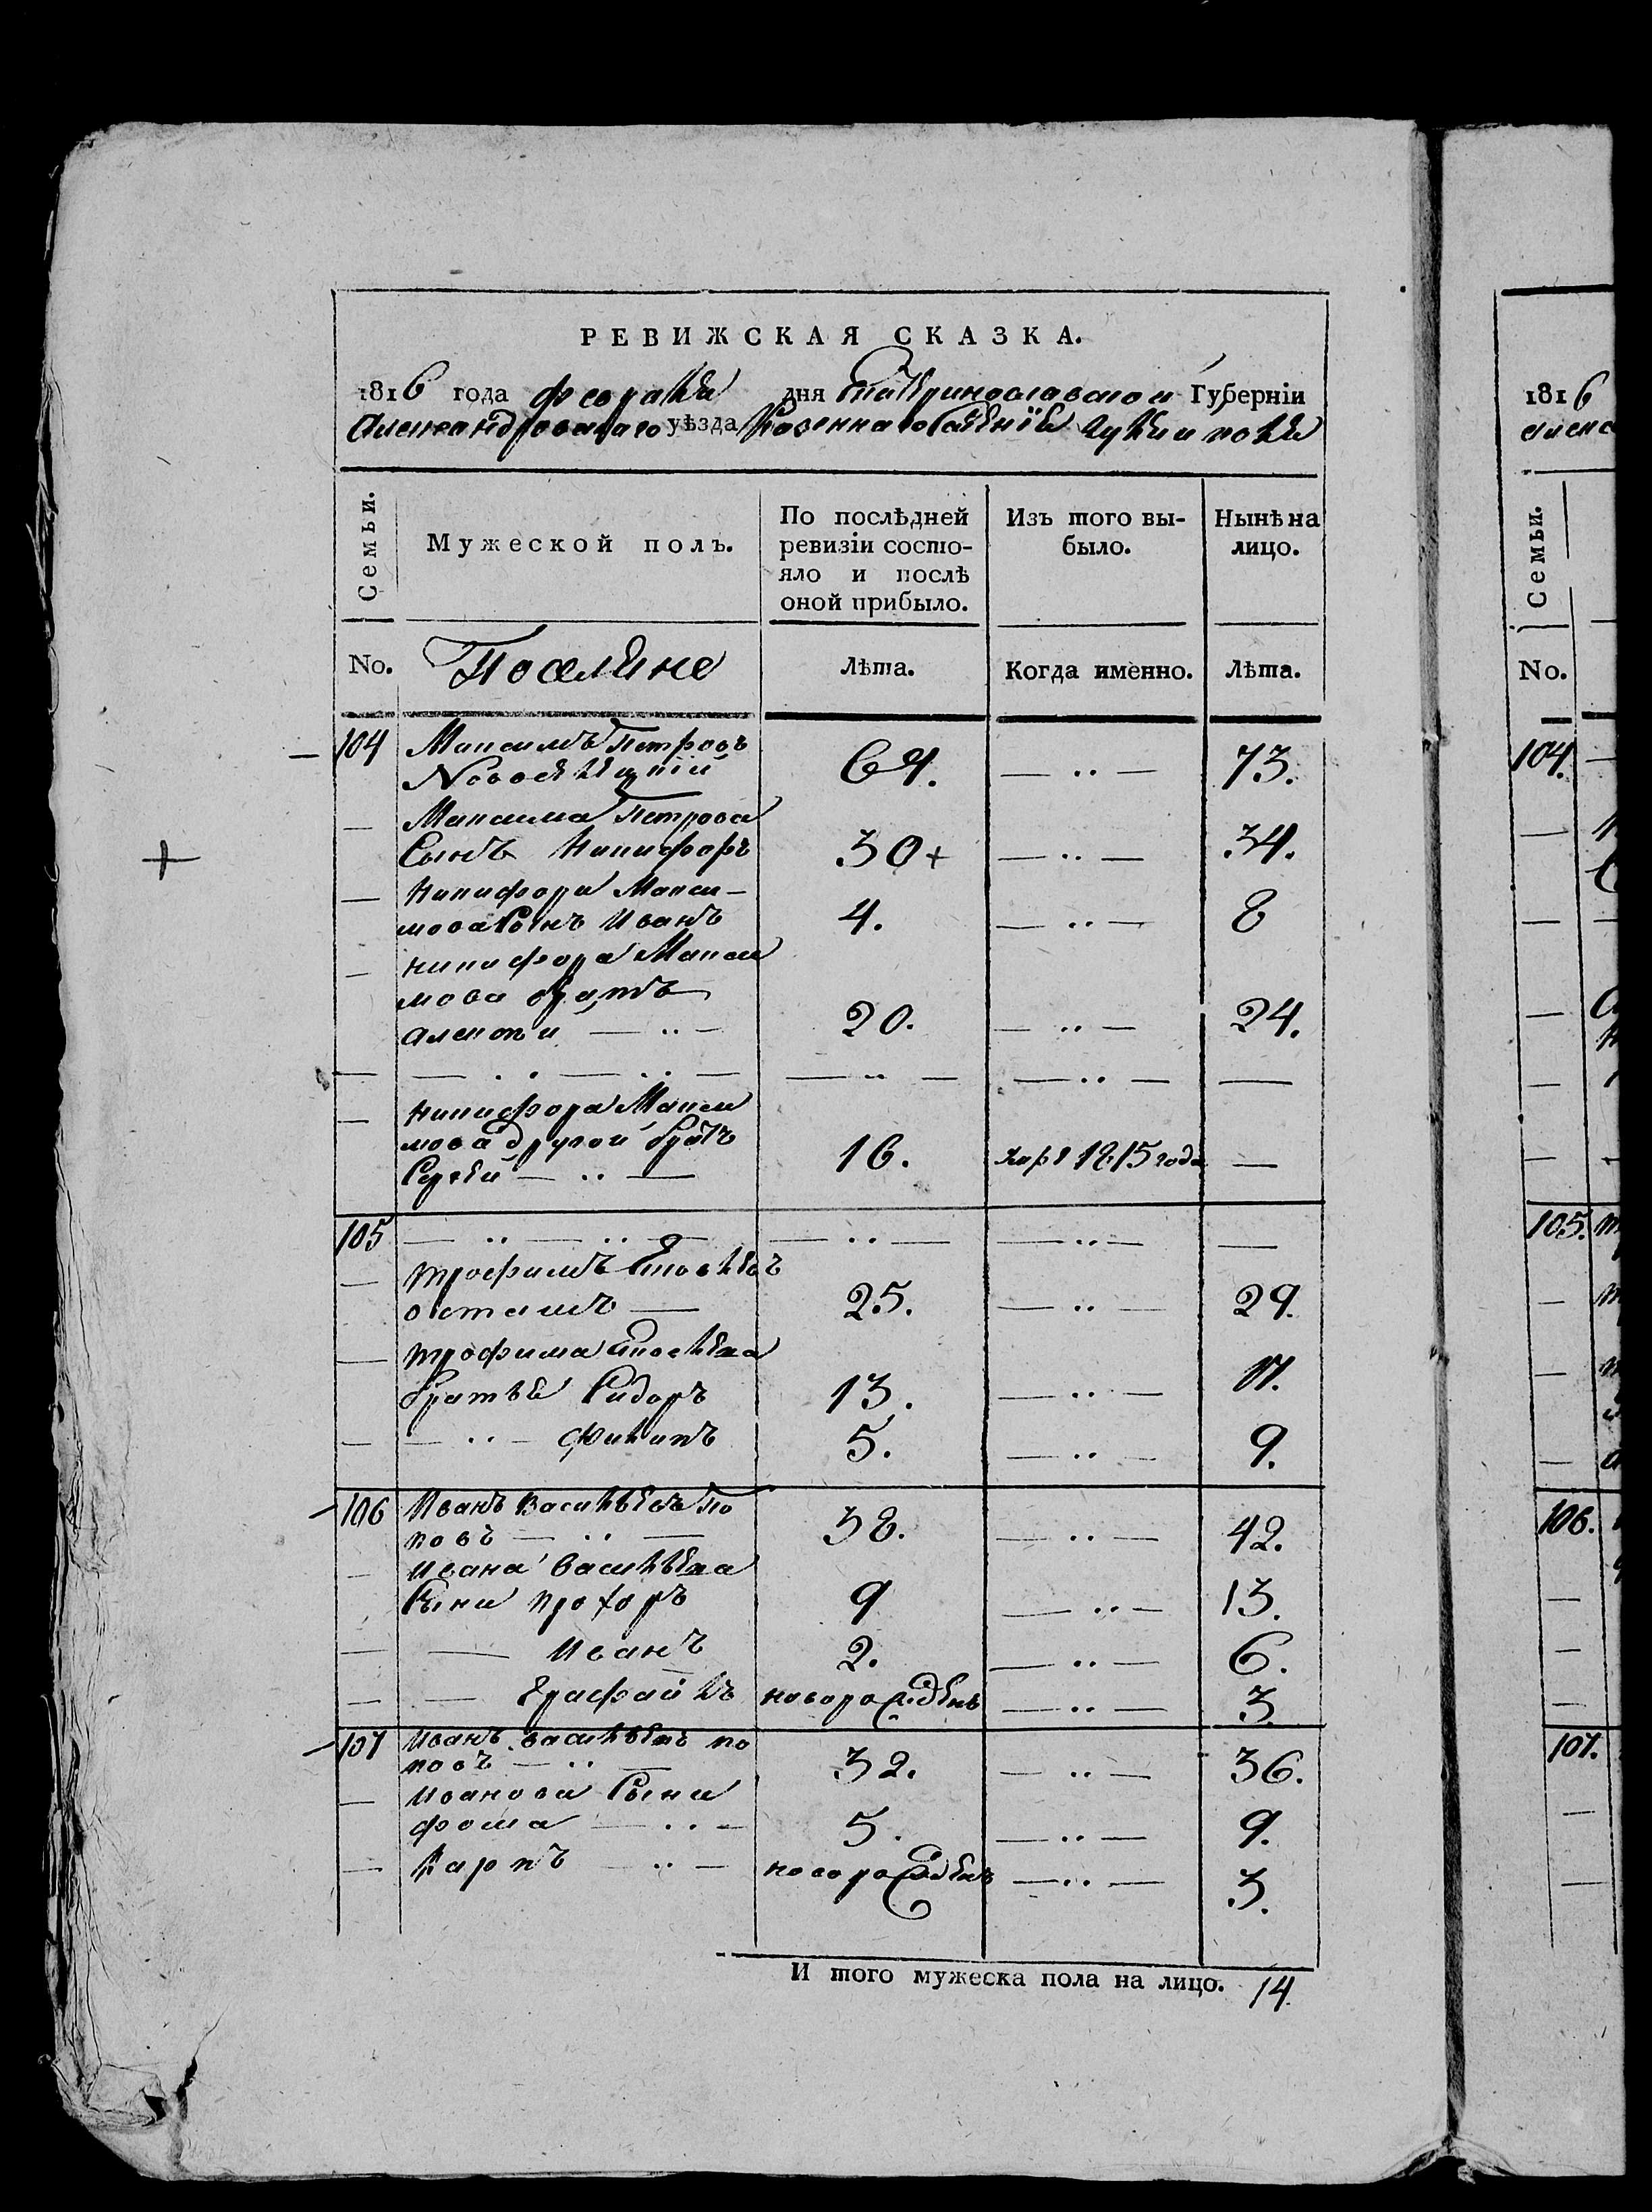 РЕВИЖСКАЯ СКАЗКА.
1816 года февраля дня Екатеринославской Губерніи
Александровскаго уѣзда Казеннаго
Семьи.
Мужеской полъ.
По послѣдней
ревизіи состо-
яло и послѣ
оной прибыло.
Изъ того вы-
было.
Нынѣ на
лицо.
No.
Поселяне
Лѣта.
Когда именно.
Лѣта.
104 Максимъ Петровъ
64. — ·· — 73.
— Максима Петрова
Сынъ Никифоръ 30+ — ·· — 34.
— Никифора Макси-
мова Сынъ Иванъ 4. — ·· — 8
— Никифора Макси
мова братъ
20. — ·· — 24.
— Никифора Макси
мова другой братъ
Сергѣй — ·· — 16. 1815 года —
105
— Трофимъ
25. — ·· — 29.
— Трофима
братья Сидоръ 13. — ·· — 17.
— — ·· — Филипъ 5. — ·· — 9.
106 Иванъ Васильевъ По
повъ — ·· — 38. — ·· — 42.
— Ивана Васильева
Сыни Прохоръ 9 — ·· — 13.
— — Иванъ 2. — ·· — 6.
— — новорожденъ — ·· — 3
107 Иванъ Васильевъ По
повъ — ·· — 32. — ·· — 36.
— Иванова Сыни
Фома — ·· — 5. — ·· — 9.
— Карпъ — ·· — новорожденъ — ·· — 3.
И того мужеска пола на лицо. 14.
1816
Семьи.
No.
104.
105.
106.
107.